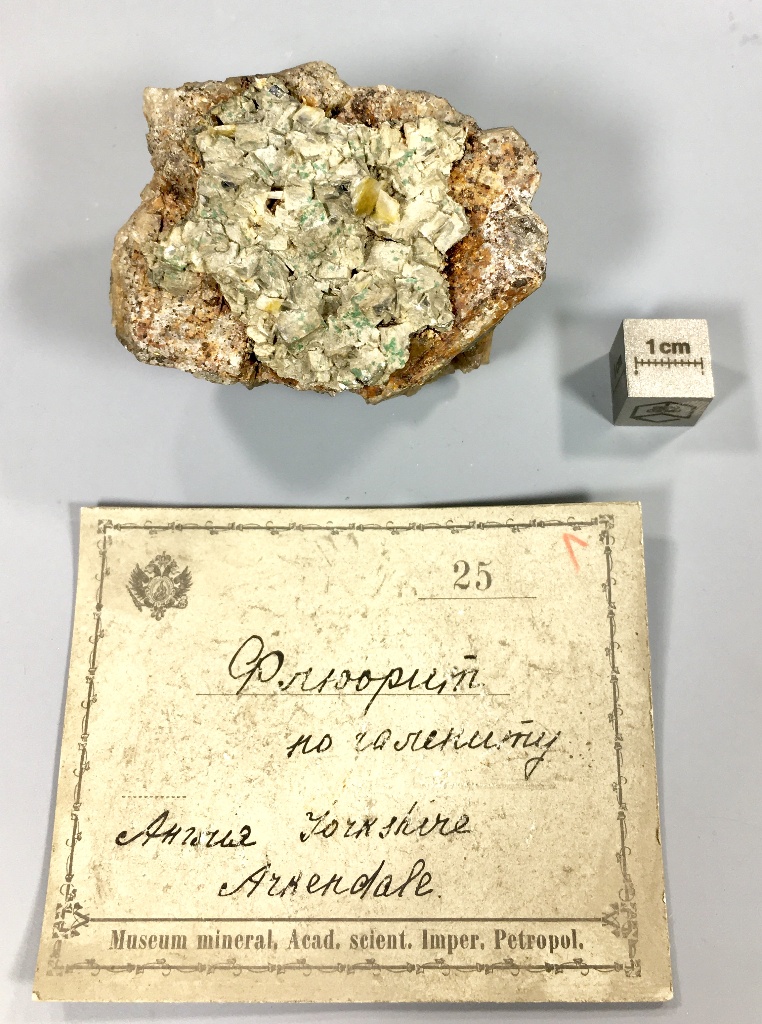 1 cm
25
Флюорит
по галениту.
Англия Yorkshire
Arkendale.
Museum mineral. Acad. scient. Imper. Petropol.